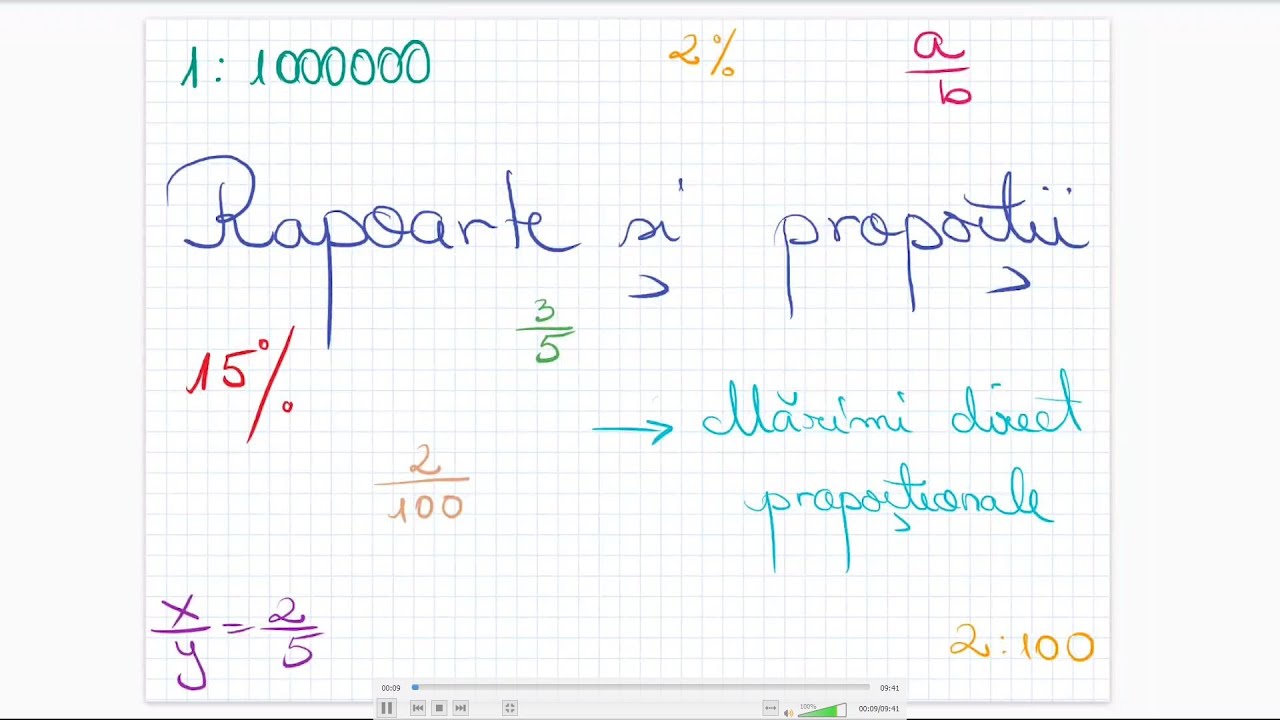 1:1000000
2%
a/b
Rapoarte și proporții
3/5
15%
→ Mărimi direct
proporționale
2/100
x/y = 2/5
2:100
00:09
09:41
100%
00:09/09:41